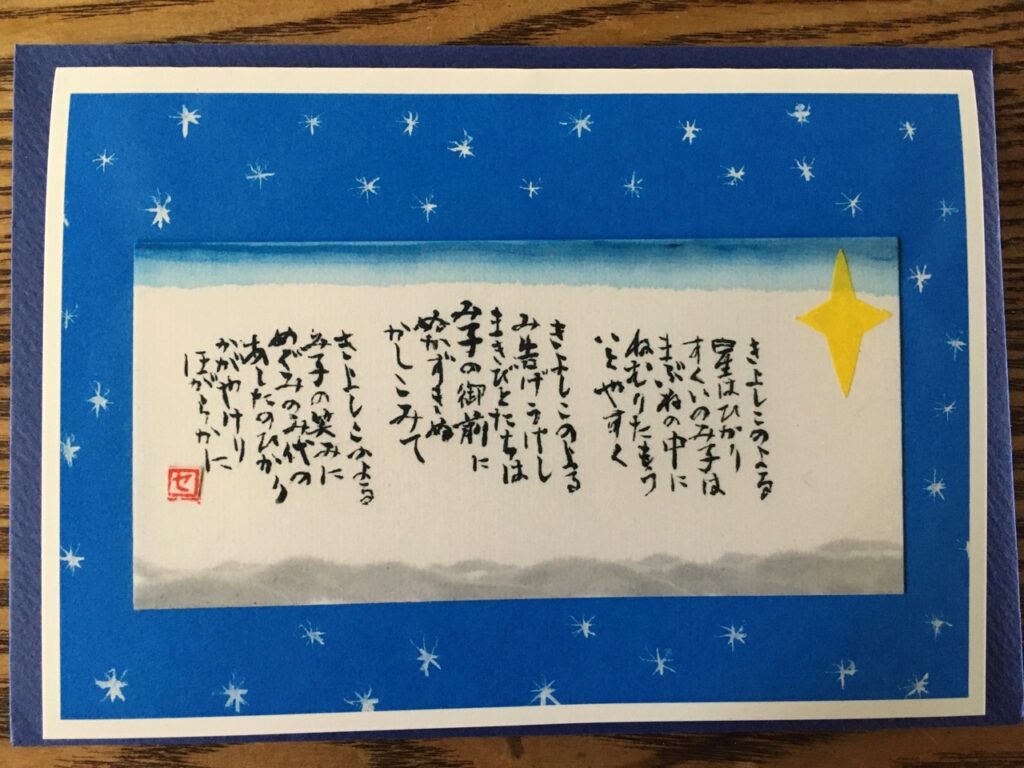 きよしこのよる
星はひかり
すくいのみ子は
まぶねの中に
ねむりたもう
いとやすく
きよしこのよる
み告げうけし
まきびとたちは
み子の御前に
ぬかずきぬ
かしこみて
きよしこのよる
み子の笑みに
めぐみのみ代の
あしたのひかり
かがやけり
ほがらかに
セ